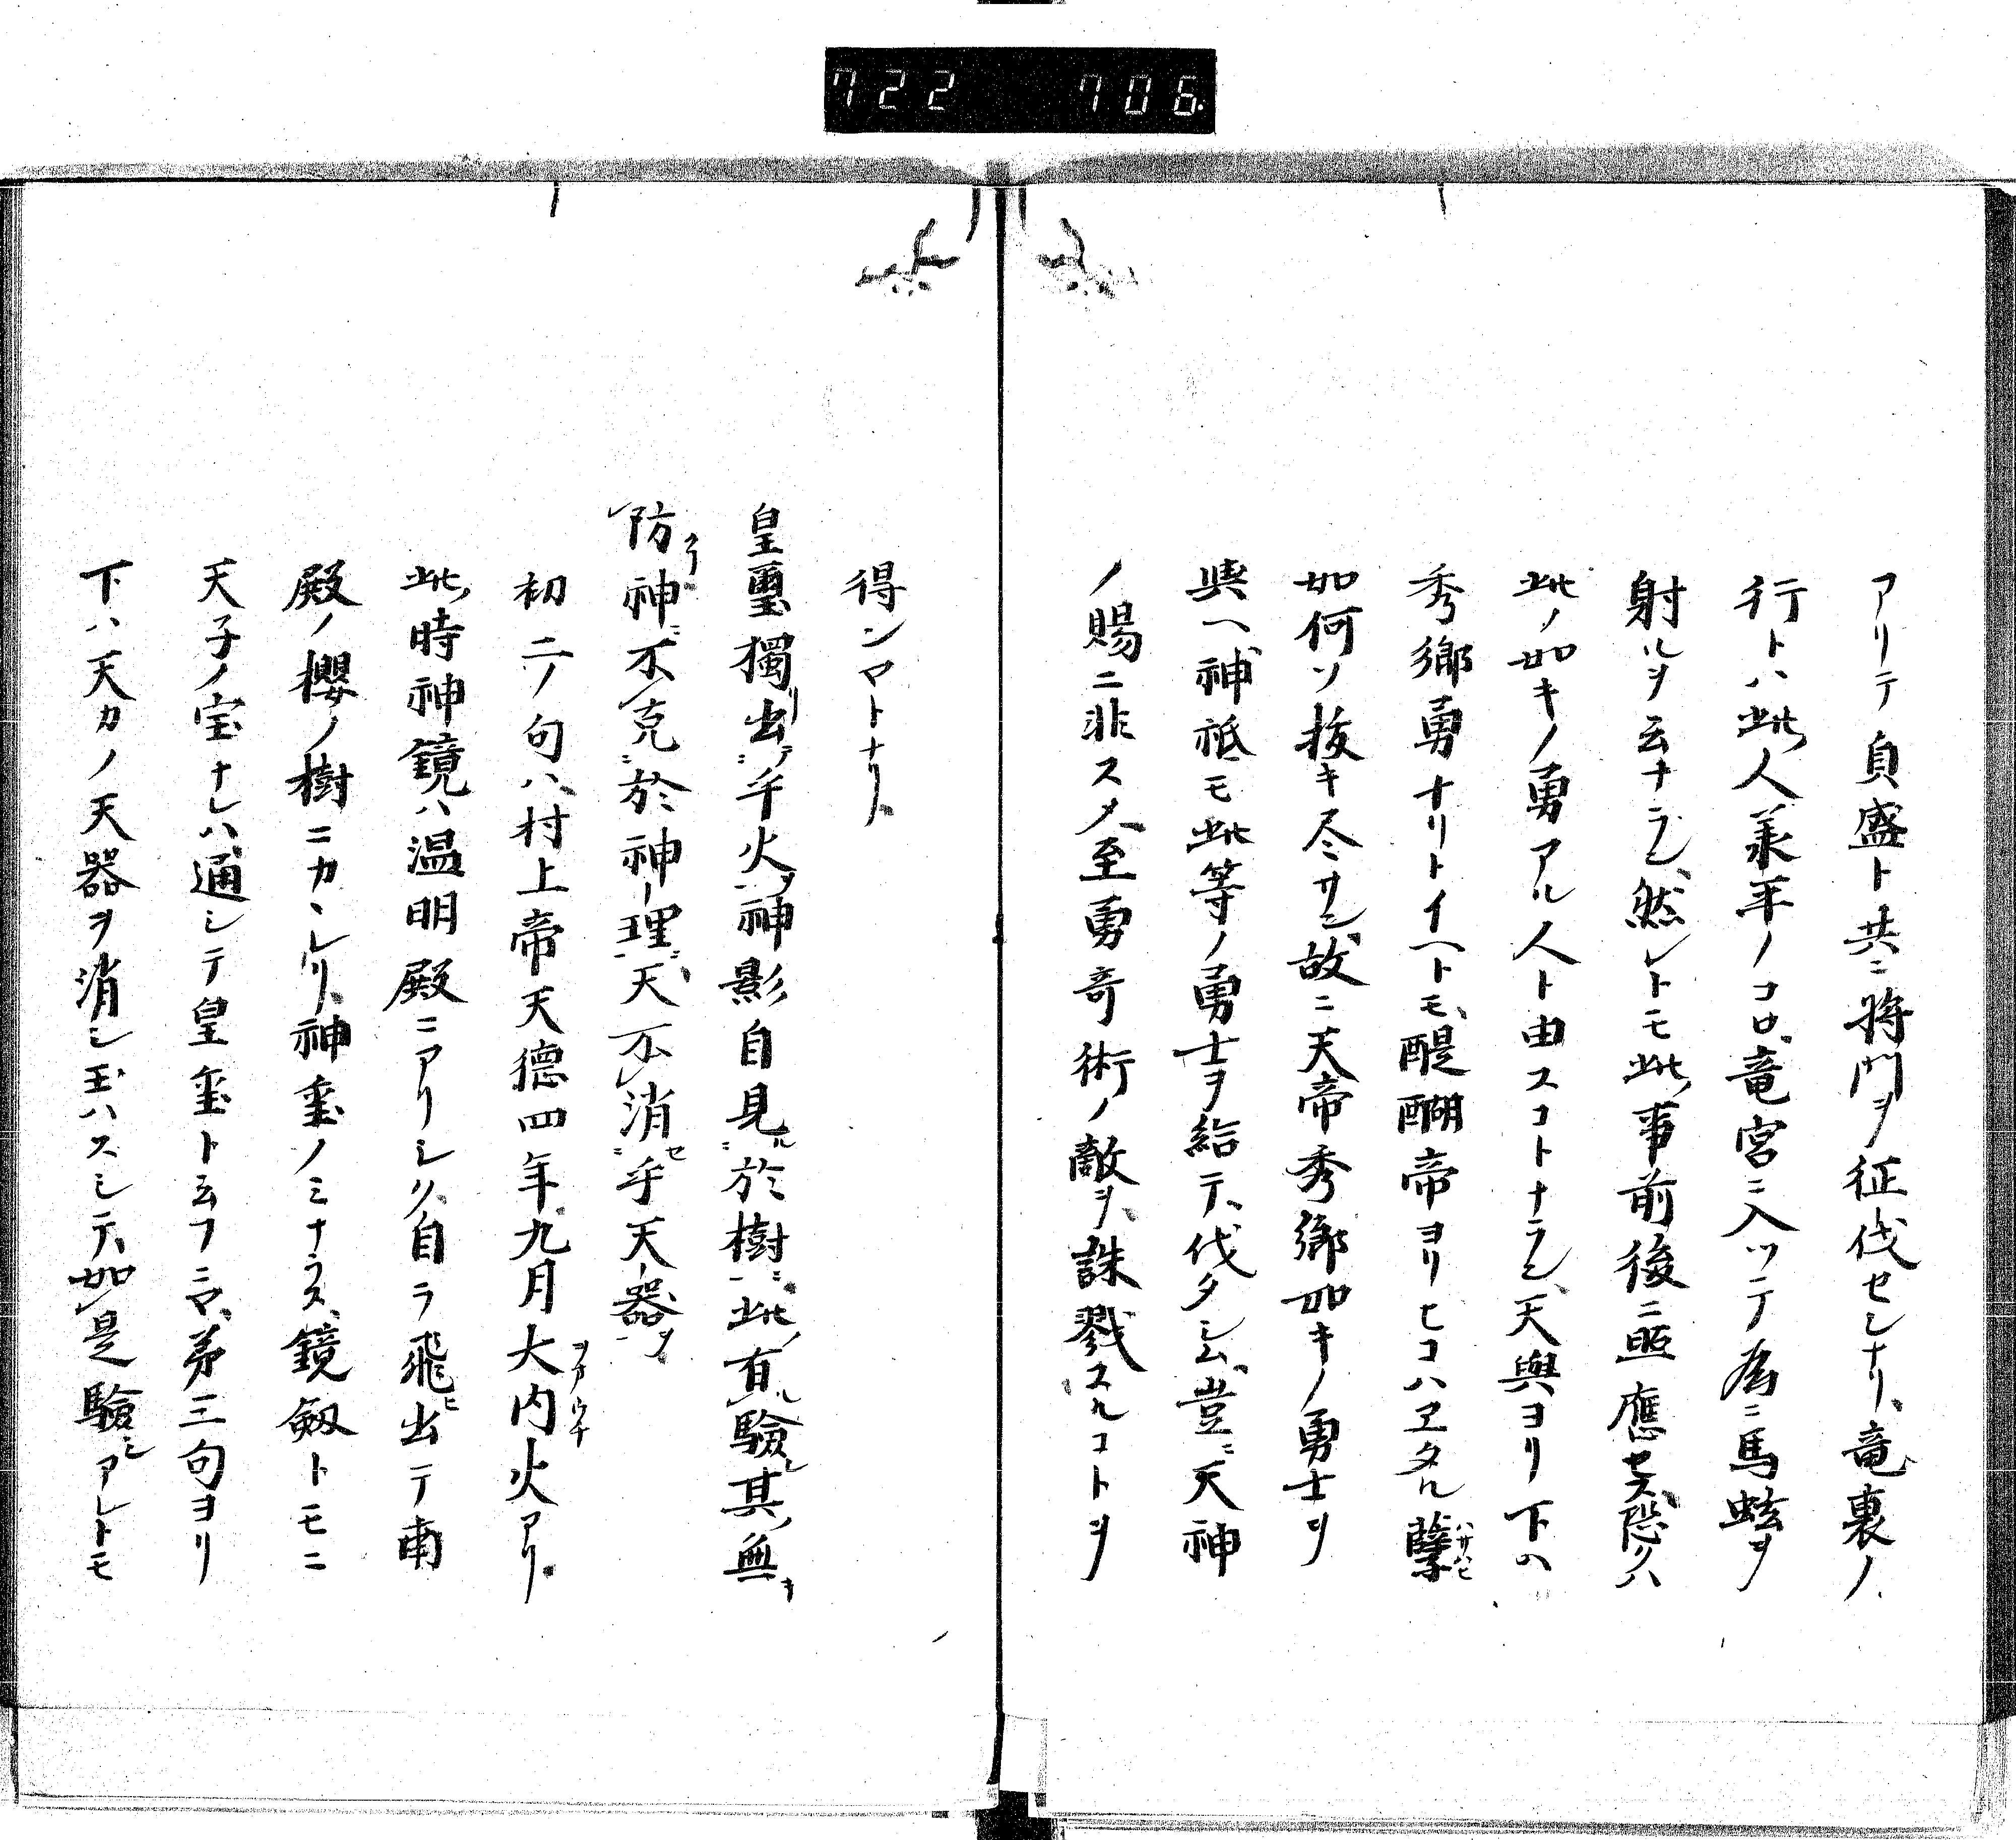 722 706.
アリテ貞盛ト共ニ将門ヲ征伐セシナリ、竜裏ノ
行トハ此人義年ノコロ、竜宮ニ入ツテ為ニ馬蚿ヲ
射ルヲ云ナラン、然レトモ此事前後ニ照應セス、恐クハ
此ノ如キノ勇アル人ト由スコトナラン、天與ヨリ下ハ
秀郷勇ナリトイヘトモ、醍醐帝ヨリヒコハヱタル孽
如何ソ抜キ尽サン、故ニ天帝秀郷如キノ勇士ヲ
與ヘ、神祗モ此等ノ勇士ヲ給テ、伐タシム、豈ニ天神
ノ賜ニ非スメ至勇奇術ノ敵ヲ、誅戮スルコトヲ
得ンマトナリ、
皇璽獨出乎火神影自見於樹此有驗其無
防神不克於神理天不消乎天器
初二ノ句ハ、村上帝天徳四年九月大内火アリ、
此時神鏡ハ温明殿ニアリシカ、自ラ飛出テ南
殿ノ櫻ノ樹ニカヽレリ、神璽ノミナラス、鏡劔トモニ
天子ノ宝ナレハ、通シテ皇璽ト云フニヤ、第三句ヨリ
下ハ天カノ天器ヲ消シ玉ハスシテ、如是驗アレトモ